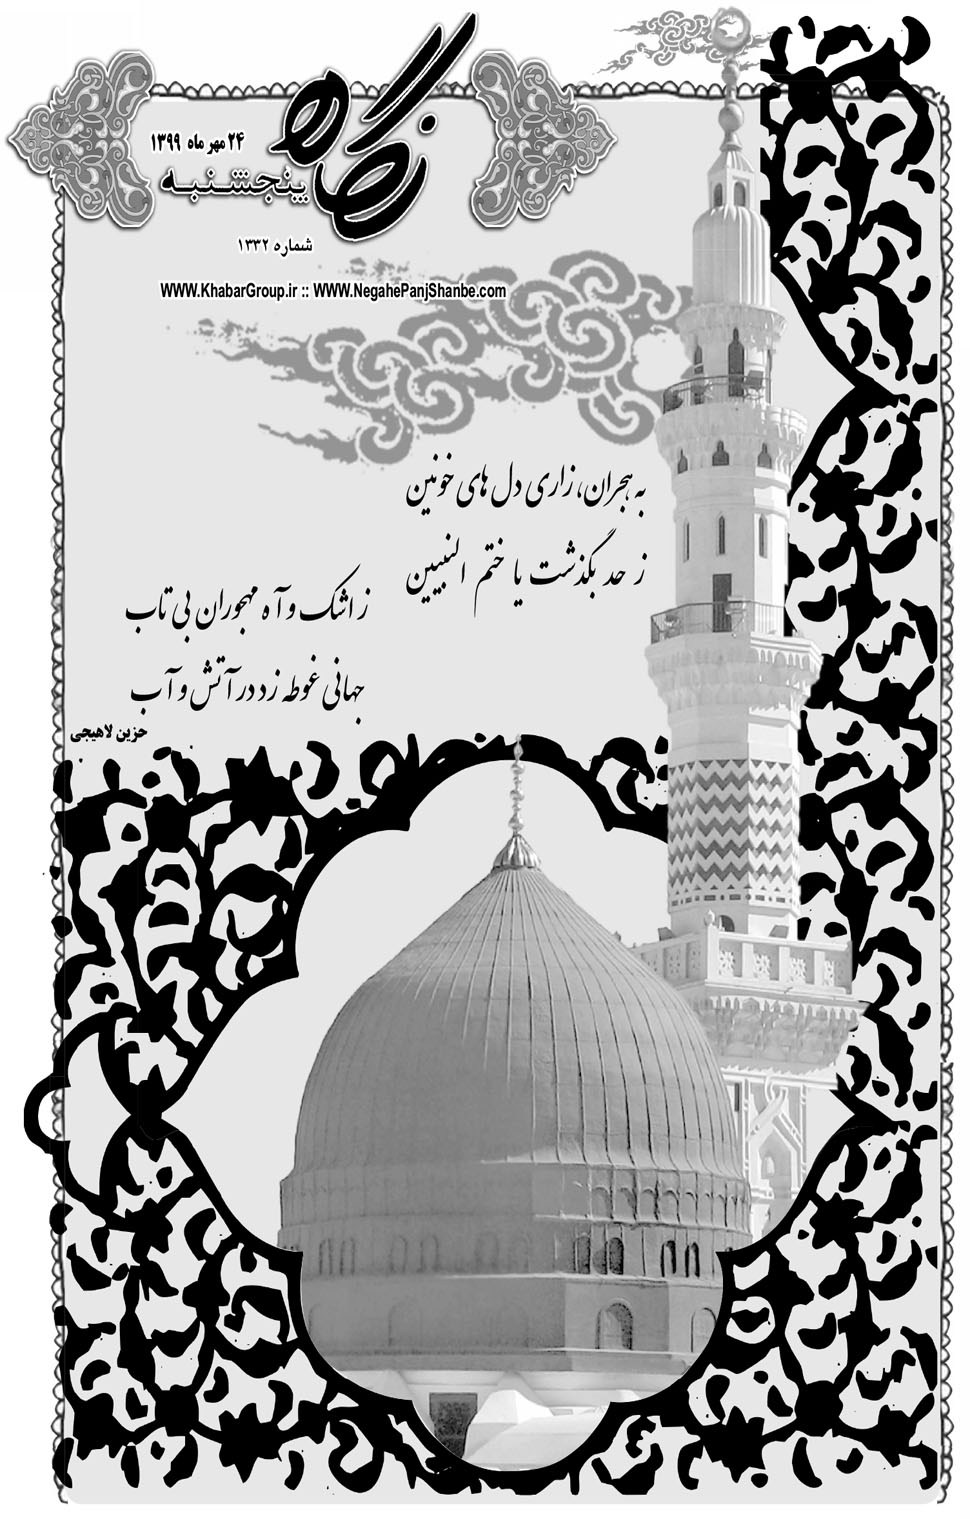 نگاه
۲۴ مهر ماه ۱۳۹۹
پنجشنبه
شماره ۱۳۳۲
WWW.KhabarGroup.ir :: WWW.NegahePanjShanbe.com
به هجران، زاری دل های خونین
ز حد بگذشت یا ختم النبیین
ز اشک و آه مهجوران بی تاب
جهانی غوطه زد در آتش و آب
حزین لاهیجی